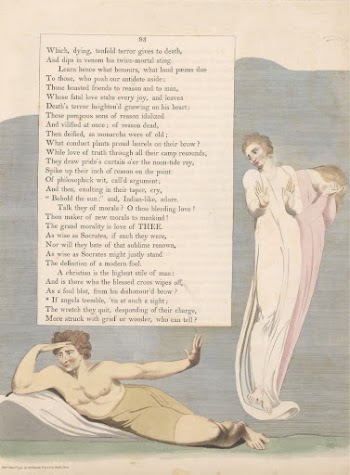 93
Which, dying, tenfold terror gives to death,
And dips in venom his twice-mortal sting.
Learn hence what honours, what loud pæans due
To those, who push our antidote aside:
Those boasted friends to reason and to man,
Whose fatal love stabs every joy, and leaves
Death's terror heighten'd gnawing on his heart:
These pompous sons of reason idolized
And vilified at once; of reason dead,
Then deified, as monarchs were of old;
What conduct plants proud laurels on their brow?
While love of truth through all their camp resounds,
They draw pride's curtain o'er the noon-tide ray,
Spike up their inch of reason on the point
Of philosophick wit, call'd argument;
And then, exulting in their taper, cry,
"Behold the sun:" and, Indian-like, adore.
Talk they of morals? O thou bleeding love!
Thou maker of new morals to mankind!
The grand morality is love of THEE.
As wise as Socrates, if such they were,
Nor will they bate of that sublime renown,
As wise as Socrates might justly stand
The definition of a modern fool.
A christian is the highest stile of man:
And is there who the blessed cross wipes off,
As a foul blot, from his dishonour'd brow?
* If angels tremble, 'tis at such a sight;
The wretch they quit, desponding of their charge,
More struck with grief or wonder, who can tell?